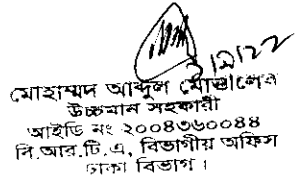 ৩/১/২২
মোহাম্মদ আব্দুল মোত্তালেব
উচ্চমান সহকারী
আইডি নং ২০০৪৩৬০০৪৪
বি.আর.টি.এ, বিভাগীয় অফিস
ঢাকা বিভাগ।